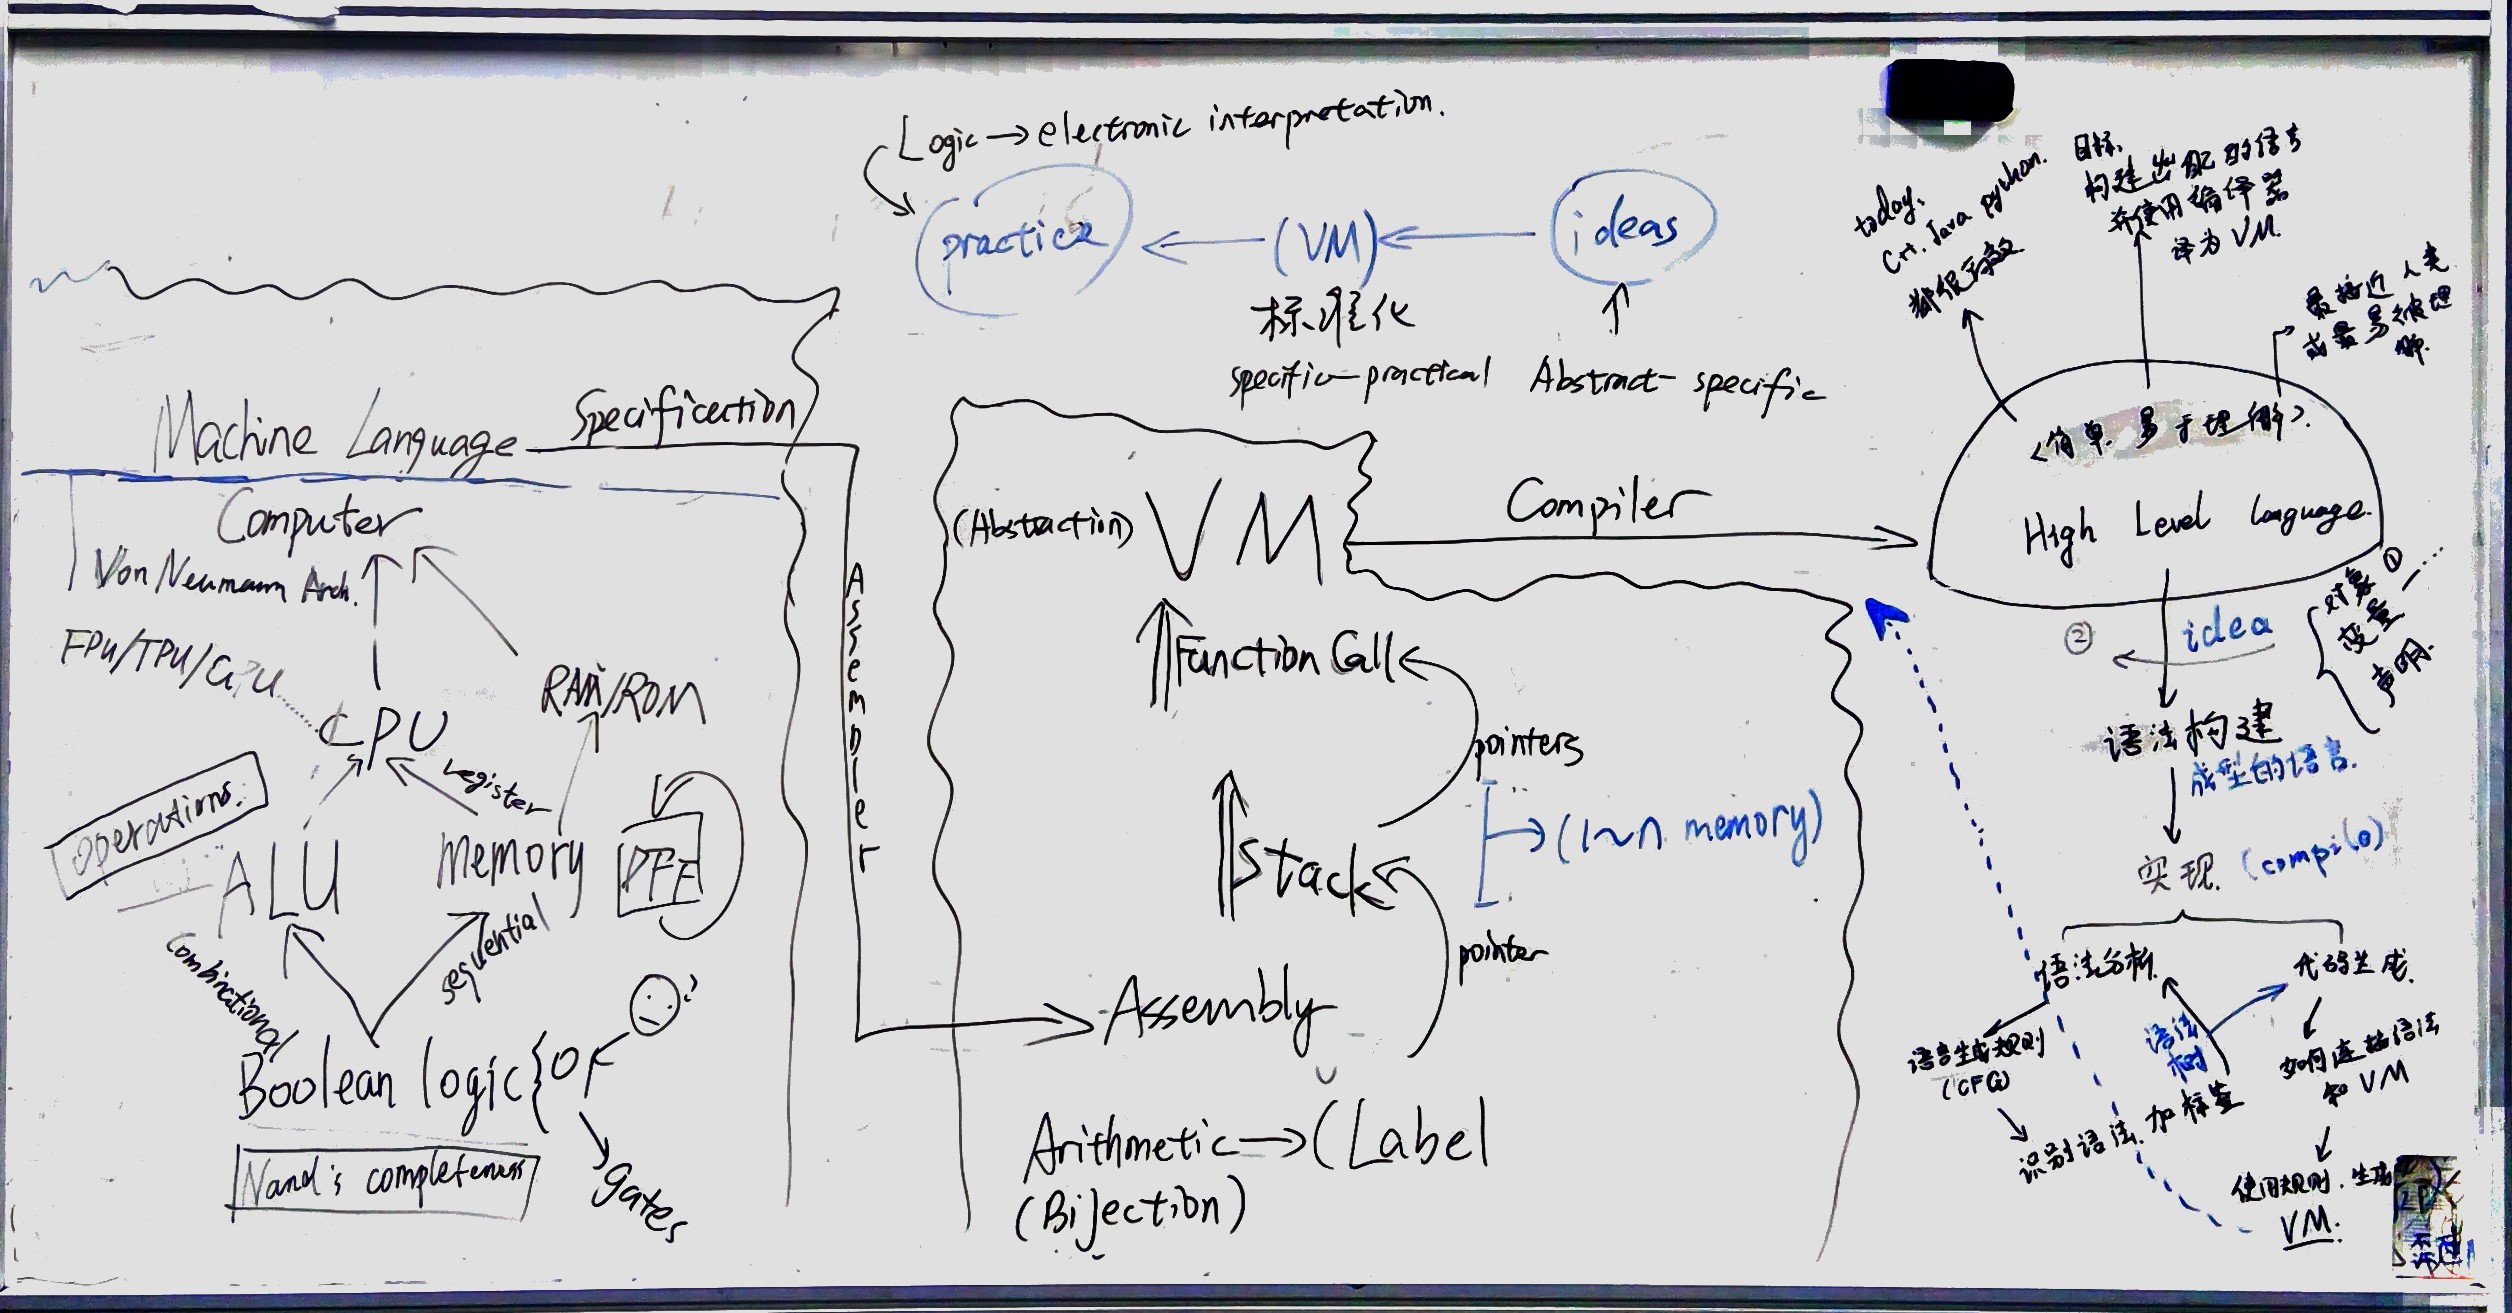 Logic → electronic interpretation.
practice ← (VM) ← ideas
标准化
specific-practical
Abstract-specific
Machine Language
Specification
Computer
Von Neumann Arch.
FPU/TPU/GPU
CPU
RAM/ROM
register
operations.
ALU
Memory
DFF
combinational
sequential
Boolean logic {
?
gates
Nand's completeness
Assembler
(Abstraction) VM
Function Call
pointers
Stack
→ (1~n memory)
pointer
Assembly
Arithmetic → (Label
(Bijection)
Compiler
today,
C++. Java python.
都很高效
目标,
构建出
的语言
并使用编译器
译为 VM.
最接近人类
或最易被理
解.
<简单. 易于理解>.
High Level language.
①
对象
变量
声明.
②
idea
语法构建
成型的语言.
实现. (compile)
语法分析.
代码生成.
语言生成规则
(CFG)
识别语法. 加标签
语法
树
如何连接语法
和 VM
使用规则. 生成
VM.